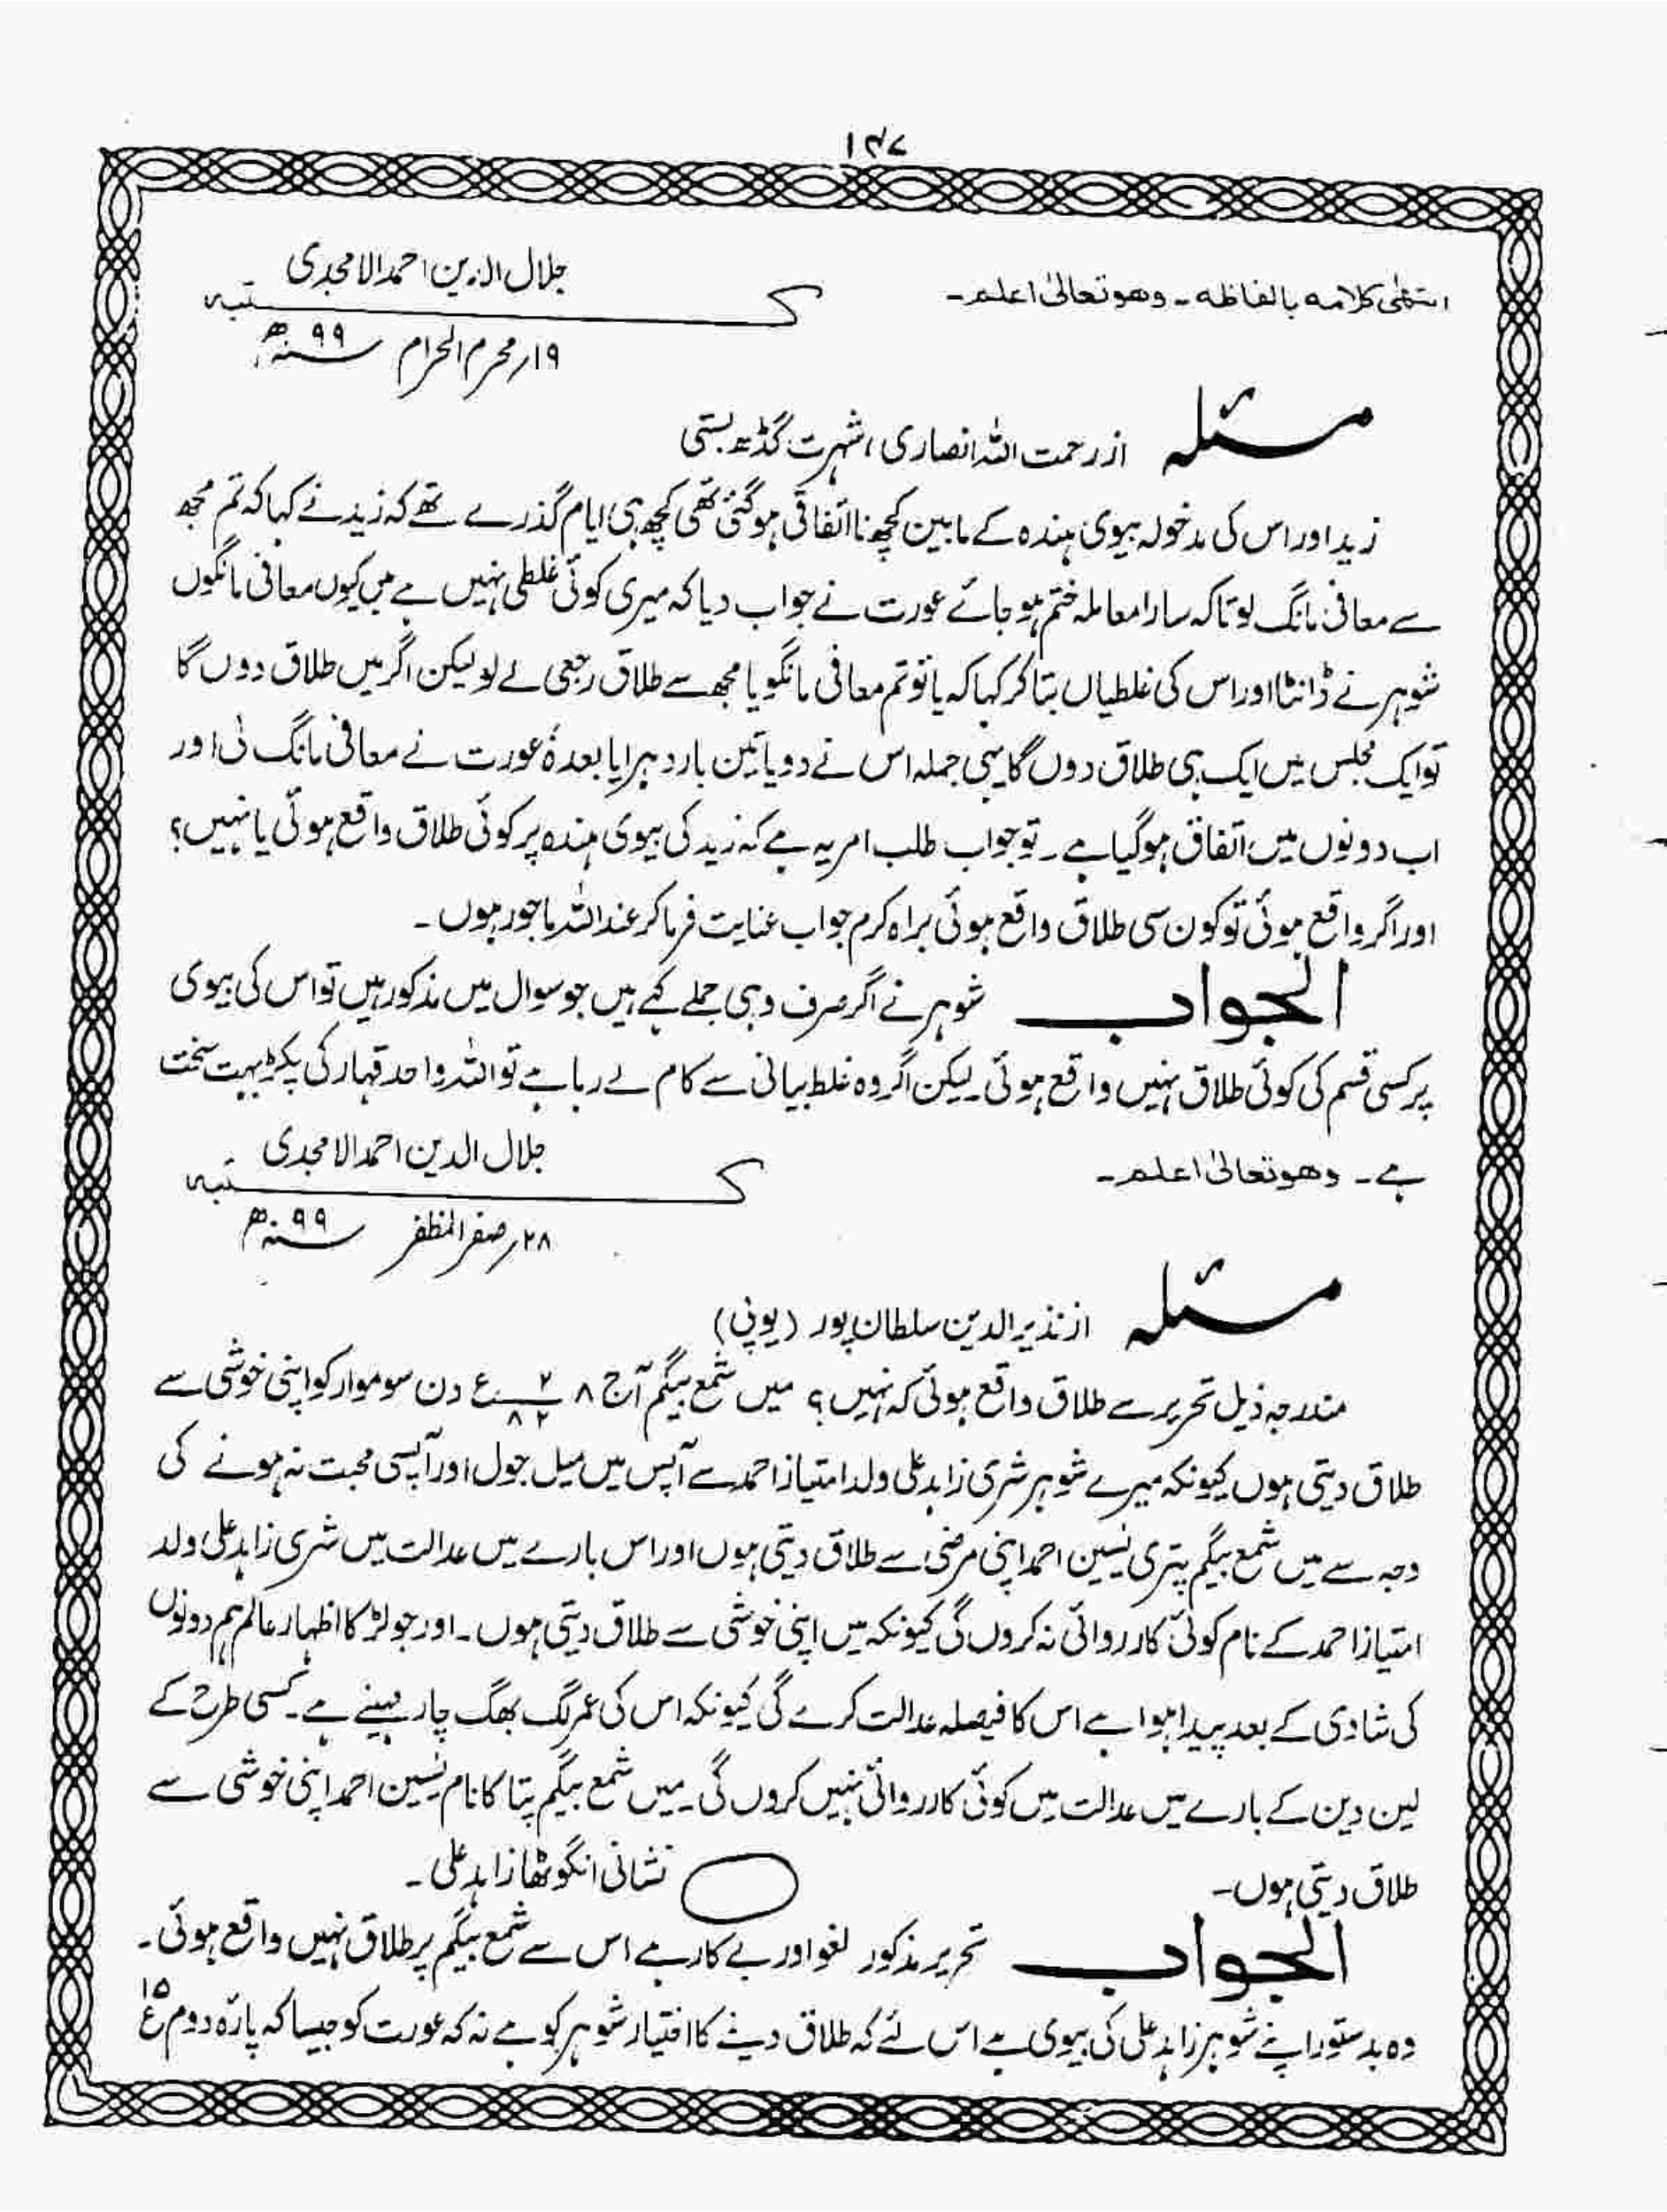 ۱۴۷
انتھٰی کلامہ بالفاظہ ۔ وھو تعالیٰ اعلم ۔
جلال الدین احمد الامجدی
کتبہ
۱۹؍ محرم الحرام سنہ ۹۹ھ
مسئلہ از رحمت اللہ انصاری، شہرت گڈھ بستی
زید اور اس کی مدخولہ بیوی ہندہ کے مابین کچھ نااتفاقی ہو گئی تھی کچھ ہی ایام گذرے تھے کہ زید نے کہا کہ تم مجھ
سے معافی مانگ لو تاکہ سارا معاملہ ختم ہو جائے عورت نے جواب دیا کہ میری کوئی غلطی نہیں ہے میں کیوں معافی مانگوں
شوہر نے ڈانٹا اور اس کی غلطیاں بتا کر کہا کہ یا تو تم معافی مانگو یا مجھ سے طلاق رجعی لے لو لیکن اگر میں طلاق دوں گا
تو ایک مجلس میں ایک ہی طلاق دوں گا یہی جملہ اس نے دو یا تین بار دہرایا بعدہٗ عورت نے معافی مانگ لی اور
اب دونوں میں اتفاق ہو گیا ہے ۔ تو جواب طلب امر یہ ہے کہ زید کی بیوی ہندہ پر کوئی طلاق واقع ہوئی یا نہیں؟
اور اگر واقع ہوئی تو کون سی طلاق واقع ہوئی براہ کرم جواب عنایت فرما کر عند اللہ ماجور ہوں ۔
الجواب شوہر نے اگر صرف وہی جملے کہے ہیں جو سوال میں مذکور ہیں تو اس کی بیوی
پر کسی قسم کی کوئی طلاق نہیں واقع ہوئی ۔ لیکن اگر وہ غلط بیانی سے کام لے رہا ہے تو اللہ واحد قہار کی پکڑ بہت سخت
ہے ۔ وھو تعالیٰ اعلم ۔
جلال الدین احمد الامجدی
کتبہ
۲۸؍ صفر المظفر سنہ ۹۹ھ
مسئلہ از نذیر الدین سلطان پور (یوپی)
مندرجہ ذیل تحریر سے طلاق واقع ہوئی کہ نہیں؟ میں شمع بیگم آج ۸ ۲ ۸۲ء دن سوموار کو اپنی خوشی سے
طلاق دیتی ہوں کیونکہ میرے شوہر شری زاہد علی ولد امتیاز احمد سے آپس میں میل جول اور آپسی محبت نہ ہونے کی
وجہ سے میں شمع بیگم پتری یٰسین احمد اپنی مرضی سے طلاق دیتی ہوں اور اس بارے میں عدالت میں شری زاہد علی ولد
امتیاز احمد کے نام کوئی کارروائی نہ کروں گی کیونکہ میں اپنی خوشی سے طلاق دیتی ہوں ۔ اور جو لڑکا اظہار عالم ہم دونوں
کی شادی کے بعد پیدا ہوا ہے اس کا فیصلہ عدالت کرے گی کیونکہ اس کی عمر لگ بھگ چار مہینے ہے ۔ کسی طرح کے
لین دین کے بارے میں عدالت میں کوئی کارروائی نہیں کروں گی ۔ میں شمع بیگم پتا کا نام یٰسین احمد اپنی خوشی سے
طلاق دیتی ہوں ۔ نشانی انگوٹھا زاہد علی ۔
الجواب تحریر مذکور لغو اور بے کار ہے اس سے شمع بیگم پر طلاق نہیں واقع ہوئی ۔
وہ بدستور اپنے شوہر زاہد علی کی بیوی ہے اس لئے کہ طلاق دینے کا اختیار شوہر کو ہے نہ کہ عورت کو جیسا کہ پارۂ دوم ع ۱۵